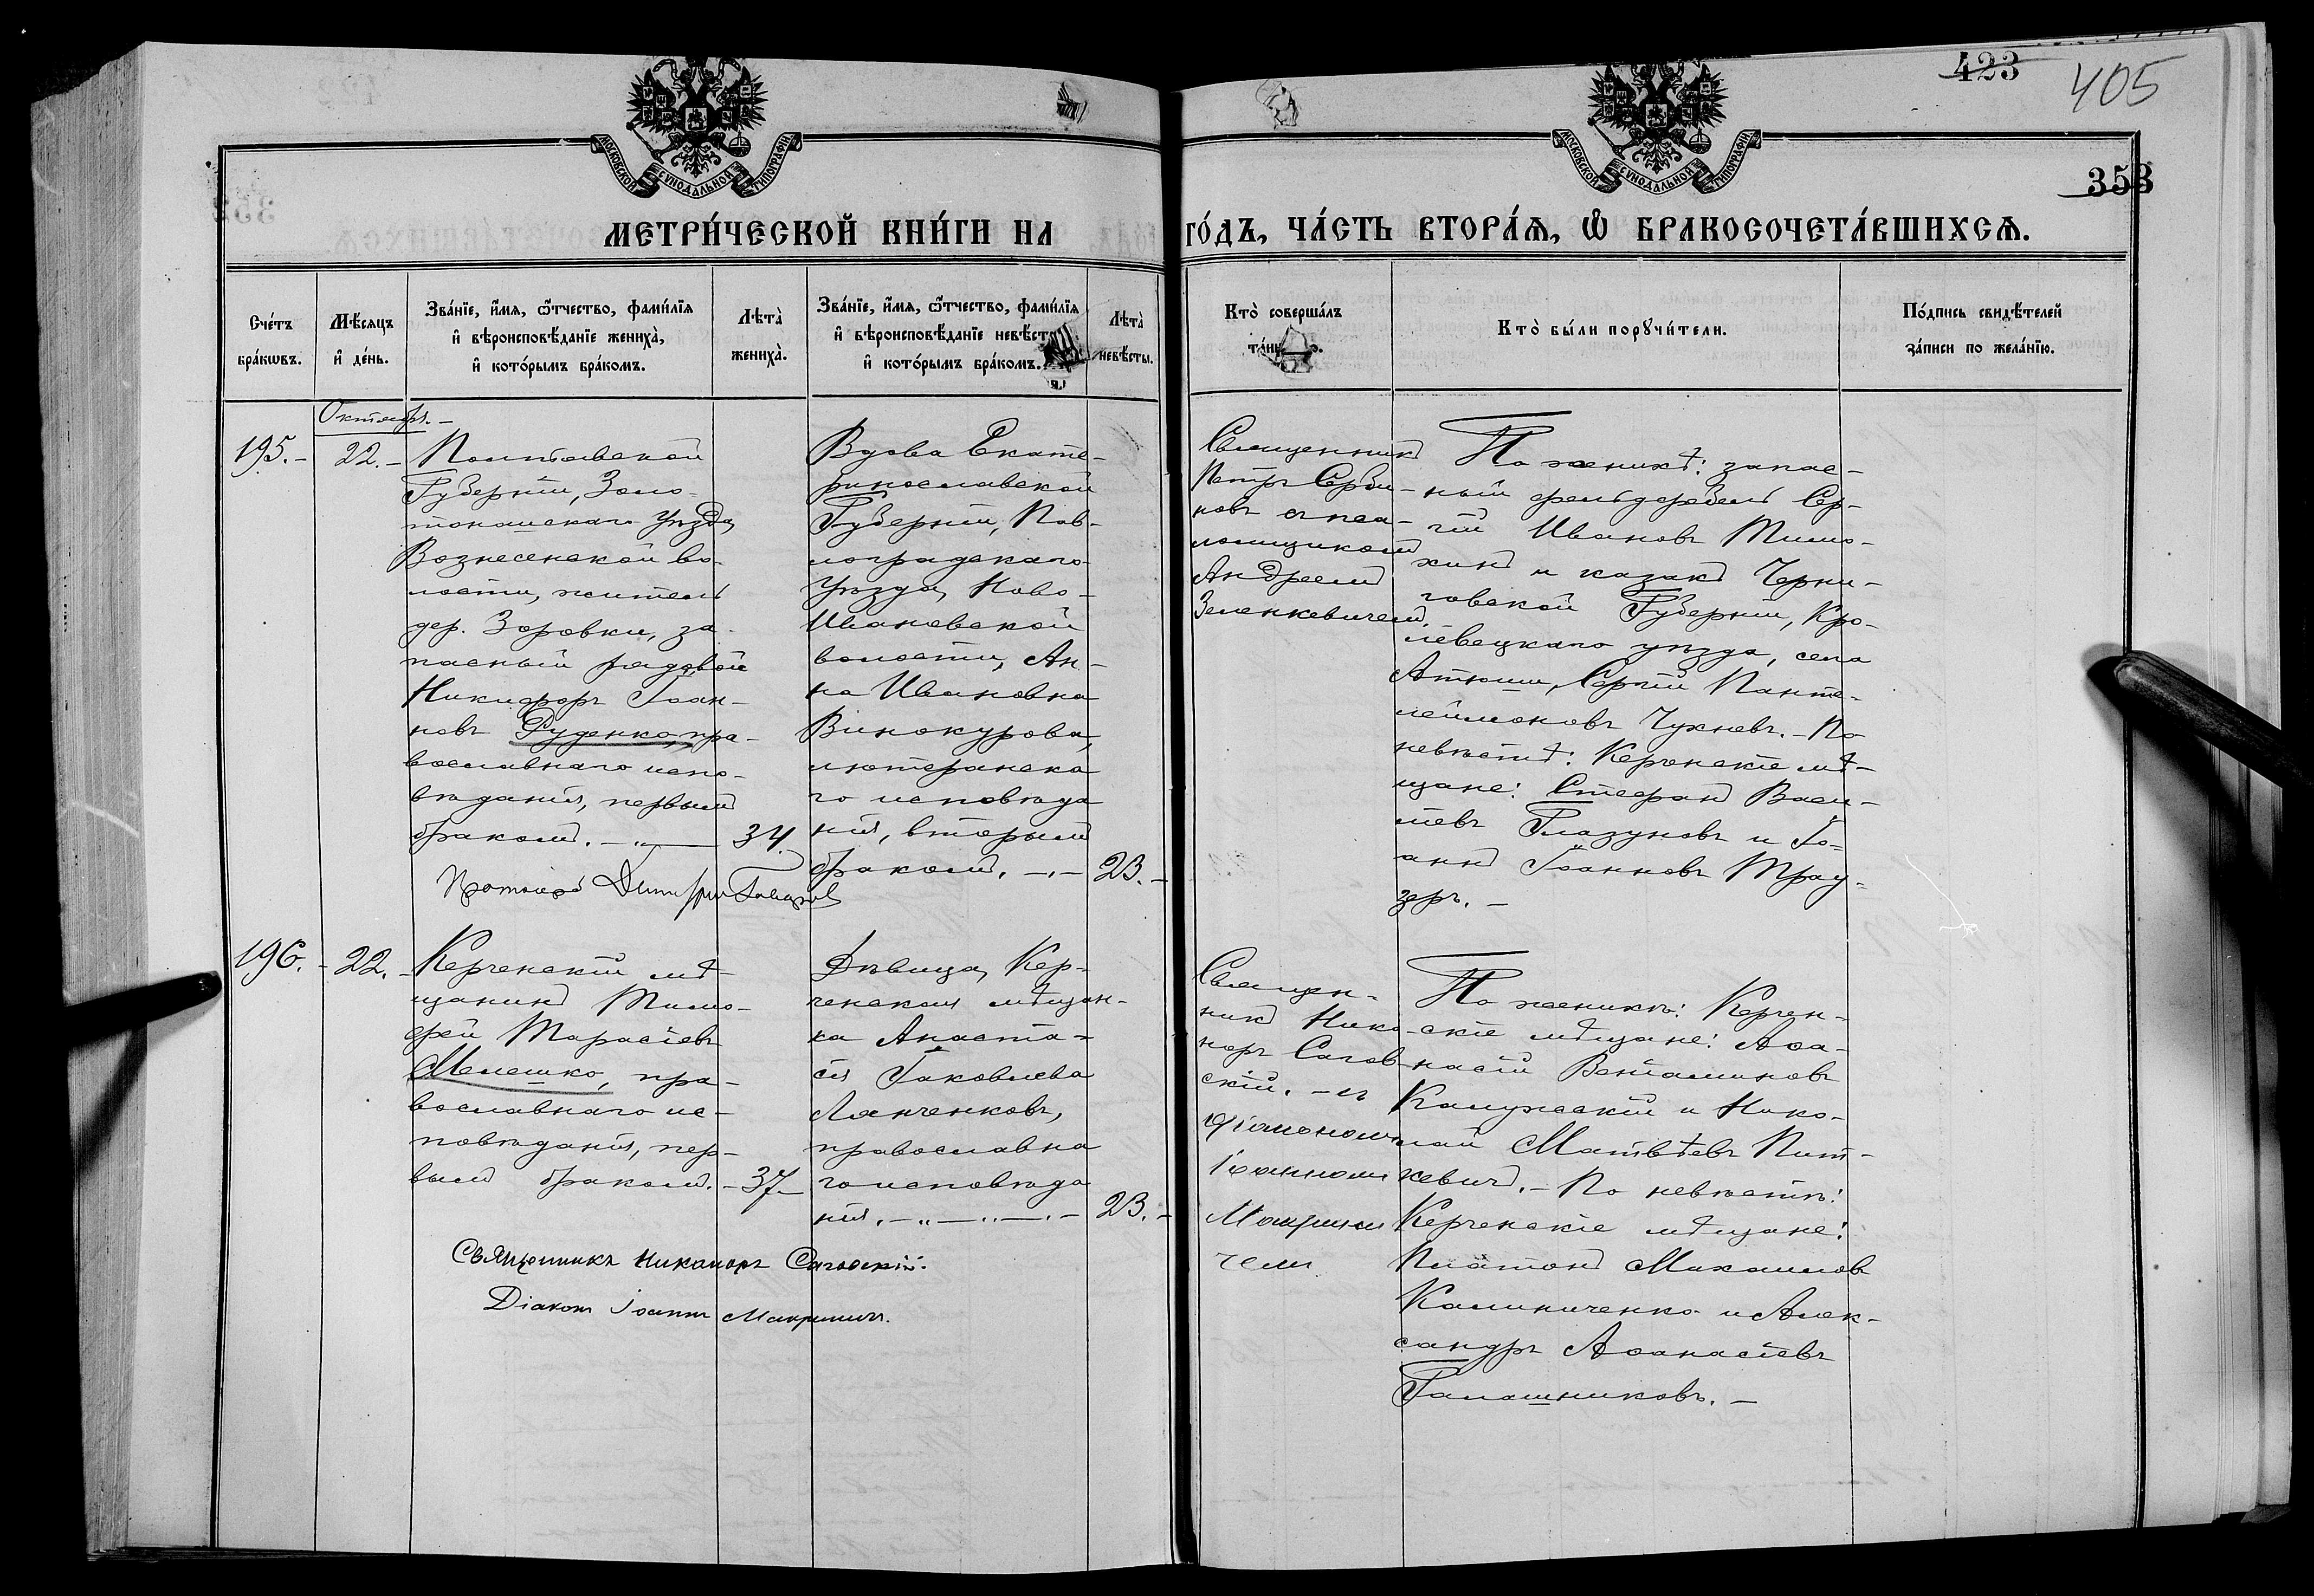 423
405
353
МОСКОВСКОЙ СѴНОДАЛЬНОЙ ТИПОГРАФІИ
МОСКОВСКОЙ СѴНОДАЛЬНОЙ ТИПОГРАФІИ
МЕТРИ́ЧЕСКОЙ КНИ́ГИ НА
ГО́ДЪ, ЧА́СТЬ ВТОРА́Ѧ, Ѽ БРАКОСОЧЕТА́ВШИХСѦ.
Сче́тъ
бра́кѡвъ.
Мѣ́сяцъ
и҆ де́нь.
Зва́нїе, и҆́мѧ, ѻ҆́тчество, фами́лїѧ
и҆ вѣроисповѣ́данїе жениха̀,
и҆ кото́рымъ бра́комъ.
Лѣта̀
жениха̀.
Зва́нїе, и҆́мѧ, ѻ҆́тчество, фами́лїѧ
и҆ вѣроисповѣ́данїе невѣ́ст
и҆ кото́рымъ бра́комъ.
Лѣта̀
невѣ́сты.
Кто̀ соверша́лъ
Кто̀ бы́ли порꙋчи́тели.
По́дпись свидѣ́телей
за́писи по жела́нїю.
Октября. –
195. –
22. –
Полтавской
Губерніи, Золо-
тоношскаго Уѣзда,
Вознесенской во-
лости, житель
дер. Зоровки, за-
пасный рядовой
Никифоръ Іоан-
новъ Руденко, пра-
вославнаго испо-
вѣданія, первымъ
бракомъ. – „ –
34.
Вдова Екате-
ринославской
Губерніи, Пав-
лоградскаго
Уѣзда, Ново-
Ивановской
волости, Ан-
на Ивановна
Винокурова,
лютеранска
го исповѣда
нія, вторымъ
бракомъ. – . –
23. –
Священникъ
Петръ Серби-
новъ съ пса-
ломщикомъ
Андреемъ
Зеленкевичемъ.
По женихѣ: запас-
ный фельдфебель Сер-
гій Ивановъ Тимо-
хинъ и казакъ Черни-
говской Губерніи, Кро-
левецкаго уѣзда, села
Атюши, Сергій Панте-
леймоновъ Чухневъ. – По
невѣстѣ: Керченскіе мѣ-
щане: Стефанъ Васи-
льевъ Глазуновъ и Іо-
аннъ Іоанновъ Трау-
зеръ. –
196. –
22. –
Керченскій мѣ-
щанинъ Тимо-
фей Тарасіевъ
Мелешко, пра-
вославнаго ис-
повѣданія, пер-
вымъ бракомъ. –
37 –
Дѣвица, Кер-
ченская мѣщан-
ка Анаста-
сія Іаковлева
Лянченковъ,
православна
го исповѣда
нія. – „ – „ – . –
23. –
Священ-
никъ Нико-
норъ Сагов
скій. – съ
діакономъ
Іоанномъ
Макрини
чемъ
По женихѣ: Керчен-
скіе мѣщане: Аѳа-
насій Веніаминовъ
Калужскій и Нико-
лай Матвѣевъ Пит-
кевичъ. – По невѣстѣ:
Керченскіе мѣщане:
Платонъ Михаиловъ
Калиниченко и Алек-
сандръ Аѳанасіевъ
Галашниковъ. –
Священникъ Никаноръ Саговскій.
Діаконъ Іоаннъ Макриничъ.